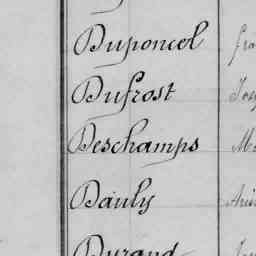 Duponcel
Dufrost
Deschamps
Dauly
Durand